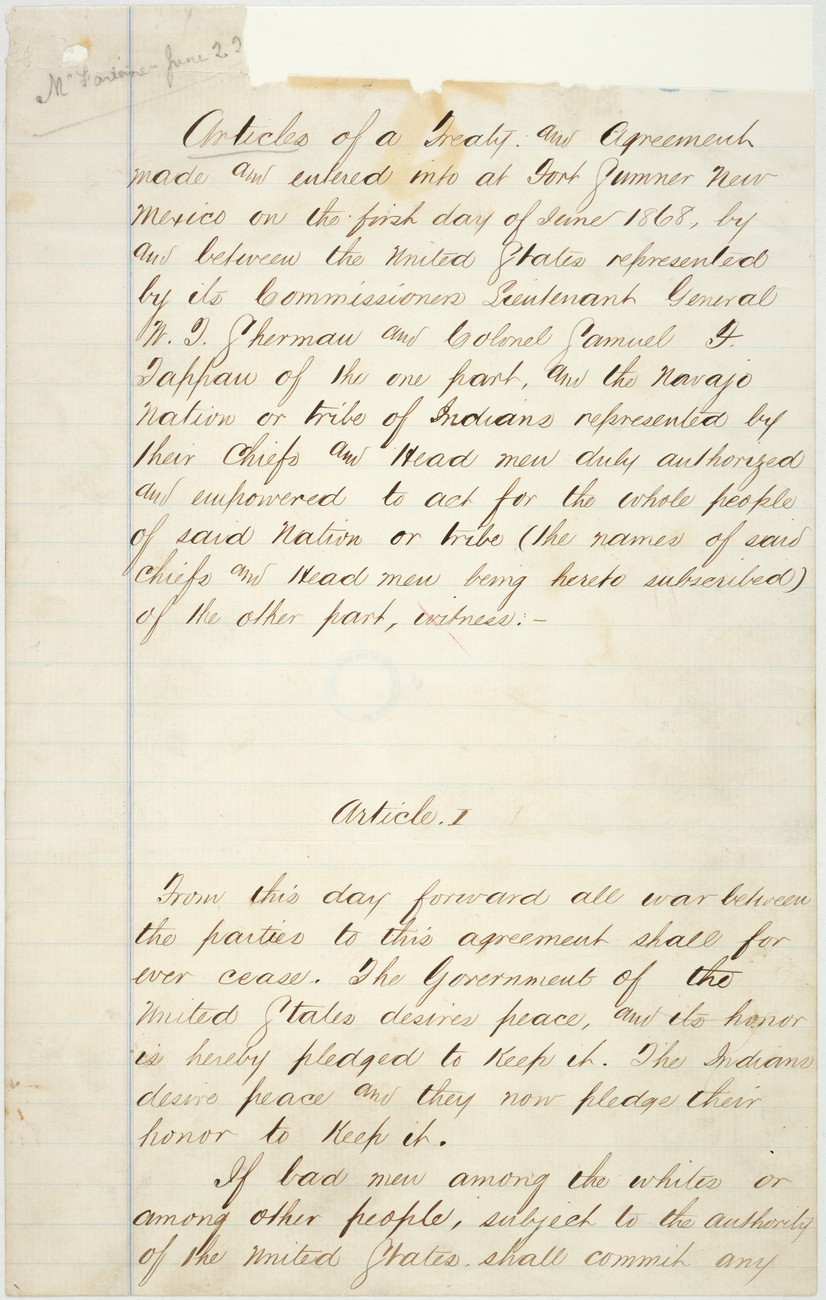 June 23
Articles of a Treaty and Agreement
made and entered into at Fort Sumner New
Mexico on the first day of June 1868, by
and between the United States represented
by its Commissioners Lieutenant General
W. T. Sherman and Colonel Samuel F.
Tappan of the one part, and the Navajo
Nation or tribe of Indians represented by
their Chiefs and Head men duly authorized
and empowered to act for the whole people
of said Nation or tribe (the names of said
Chiefs and Head men being hereto subscribed)
of the other part, witness:—
Article. I
From this day forward all war between
the parties to this agreement shall for
ever cease. The Government of the
United States desires peace, and its honor
is hereby pledged to keep it. The Indians
desire peace and they now pledge their
honor to keep it.
If bad men among the whites or
among other people, subject to the authority
of the United States shall commit any